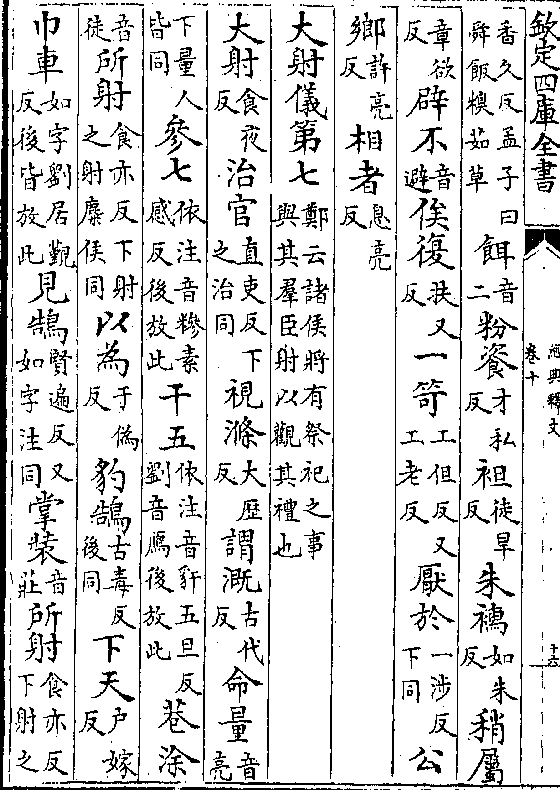 欽定四庫全書
香久反孟子曰舜飯糗茹草 餌音二 粉餈才私反 袒徒旱反 朱襦如朱反 稍屬
章欲反 辟不音避 俟復扶又反 一笴工但反又工老反 厭於一涉反下同 公
鄉許亮反 相者息亮反
大射儀第七鄭云諸侯將有祭祀之事與其羣臣射以觀其禮也
大射食夜反 治官直吏反下之治同 視滌大歷反 謂溉古代反 命量音亮
下量人皆同 參七依注音糝素感反後放此 干五依注音豻五旦反劉音鴈後放此 巷涂
音徒 所射食亦反下射之射麋侯同 以為于偽反 豹鵠古毒反後同 下天戶嫁反
巾車如字劉居覲反後皆放此 見鵠賢遍反又如字注同 掌裝音莊 所射食亦反下射之
經典釋文
卷十
十六